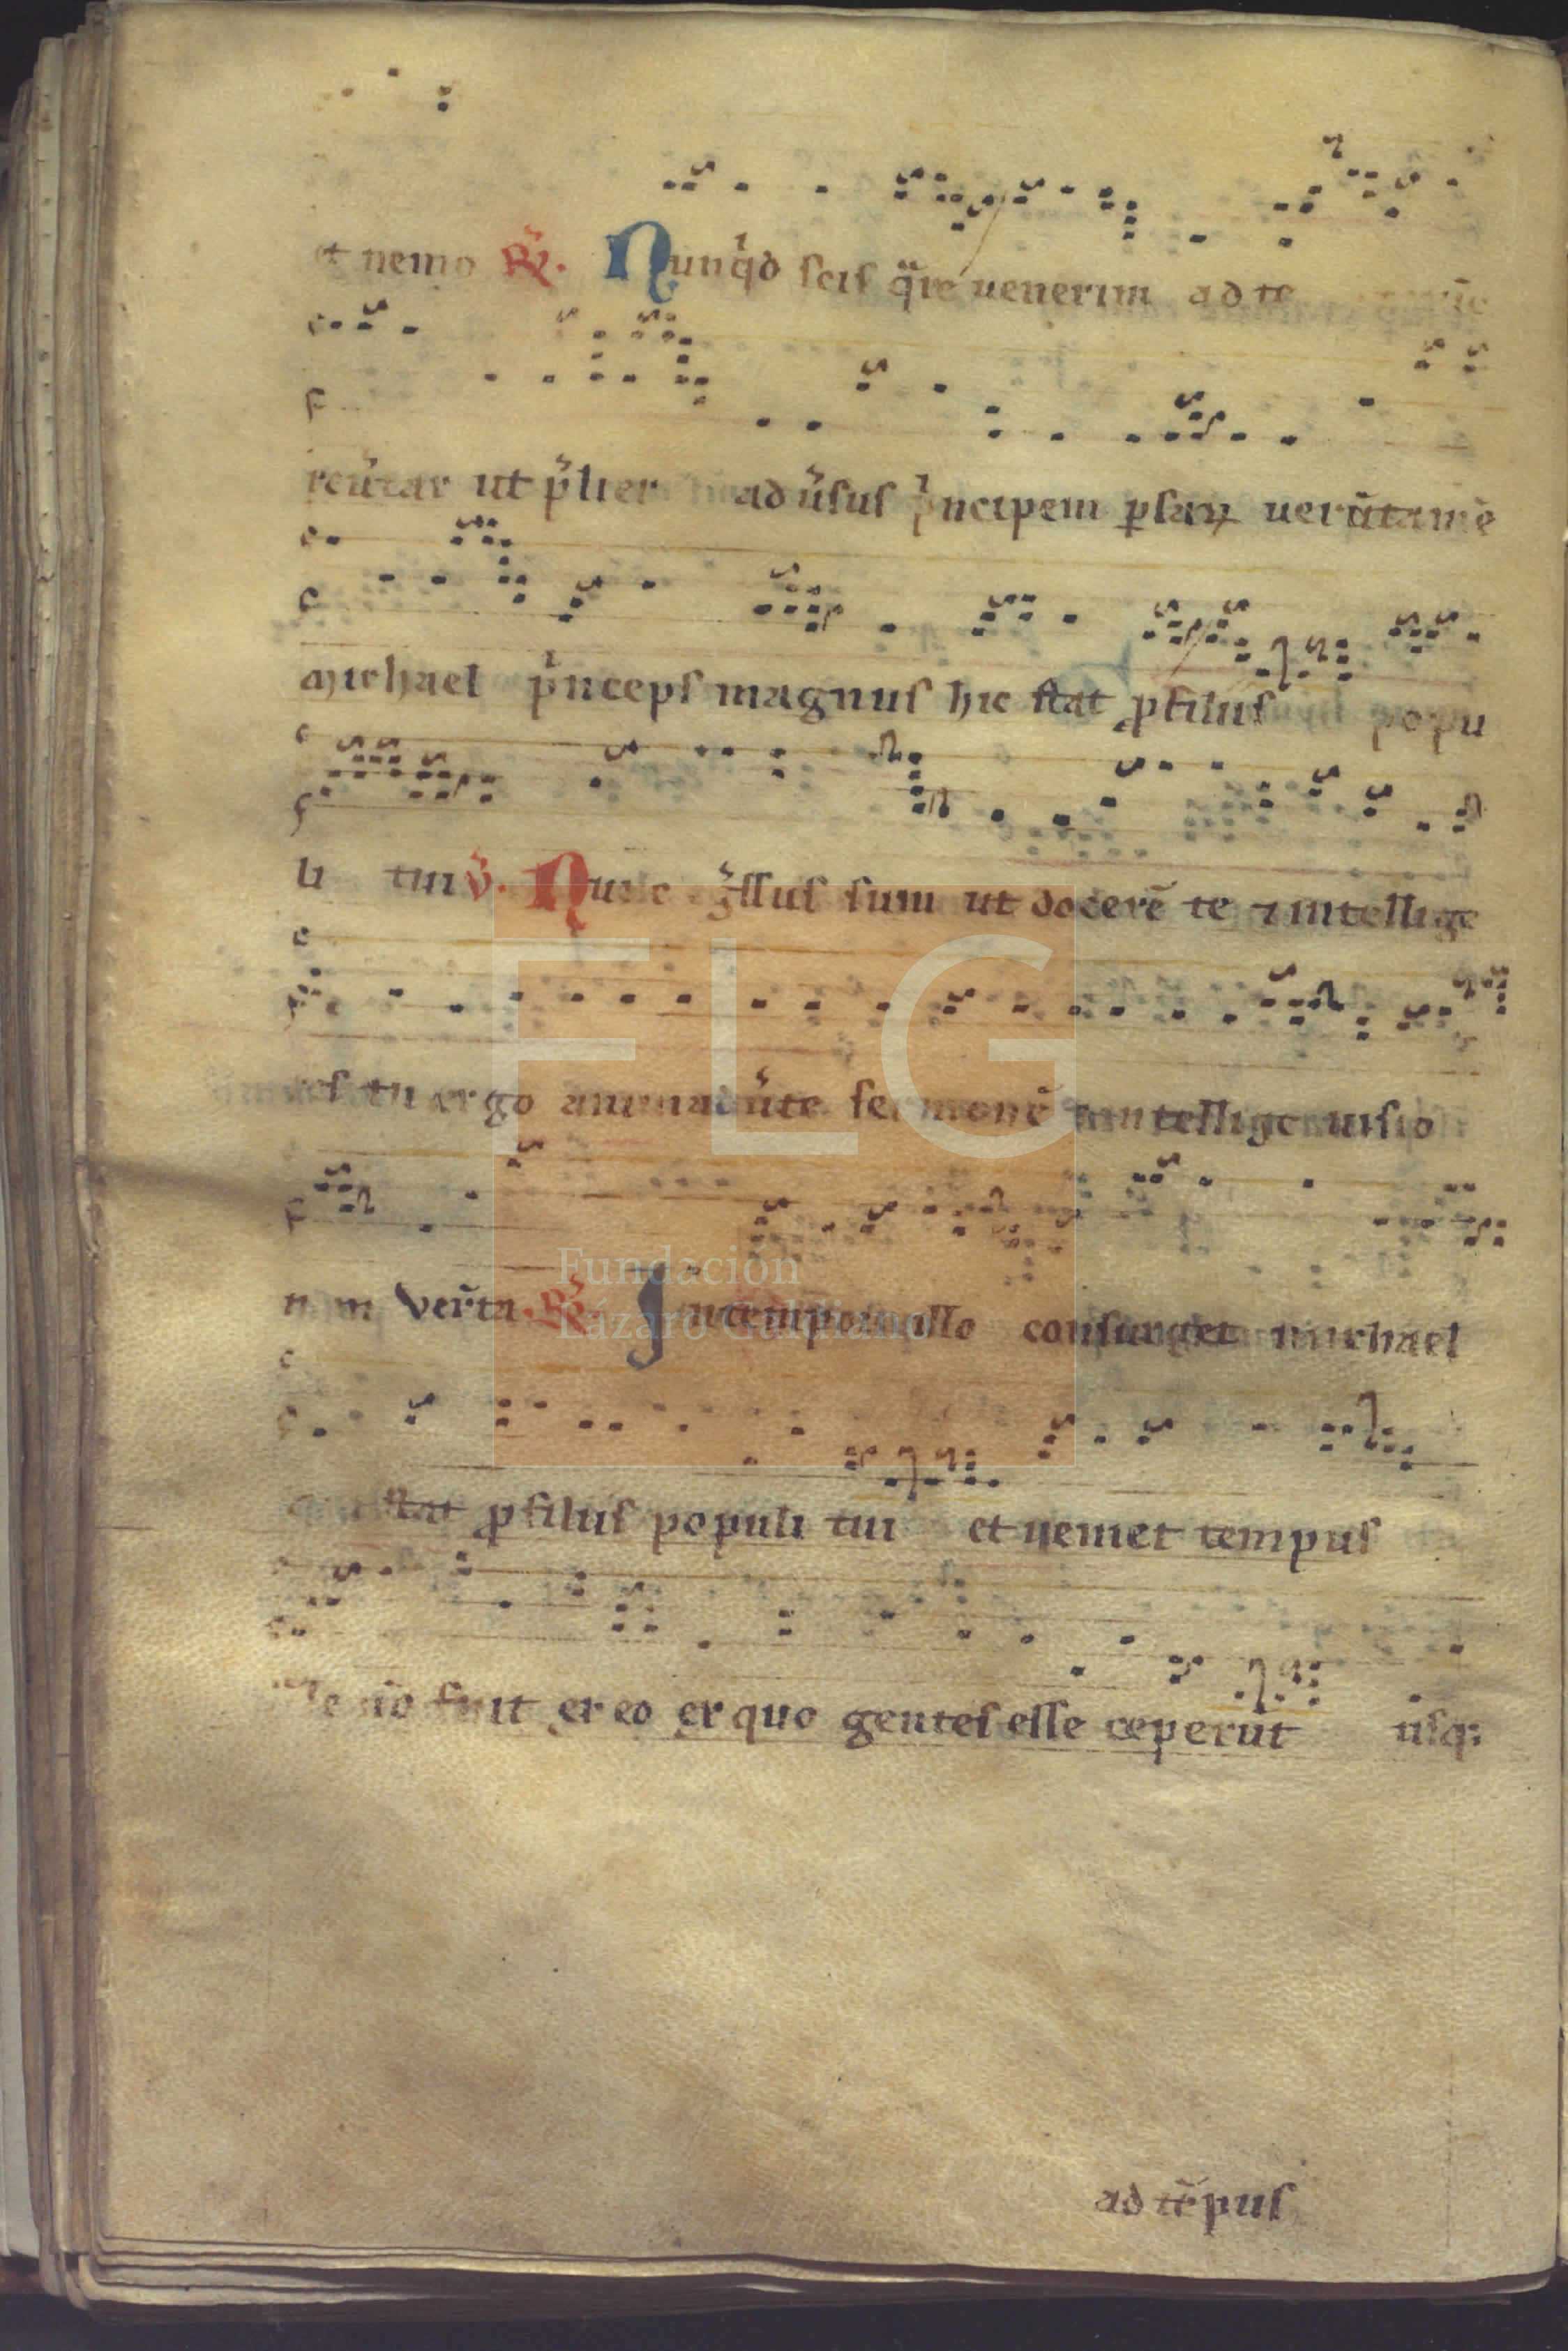 et nemo R̃. Nunq̇d scis q̈re uenerim ad te nunc
reũtar ut p̃lier adũsus pͥncipem ꝑsaꝝ uerũtamẽ
michael pͥnceps magnus hic stat ꝓ filiis popu
li tui ℣. Nunc eg̃ssus sum ut docerẽ te ⁊ intellige
res tu ergo animadũte sermonẽ ⁊ intellige uisio
nem Ver̃ta. R̃. In tempore illo consurget michael
qui stat ꝓ filiis populi tui et ueniet tempus
quale nõ fuit ex eo ex quo gentes esse ceperũt usq;
ad tẽpus
FLG
Fundación
Lázaro Galdiano